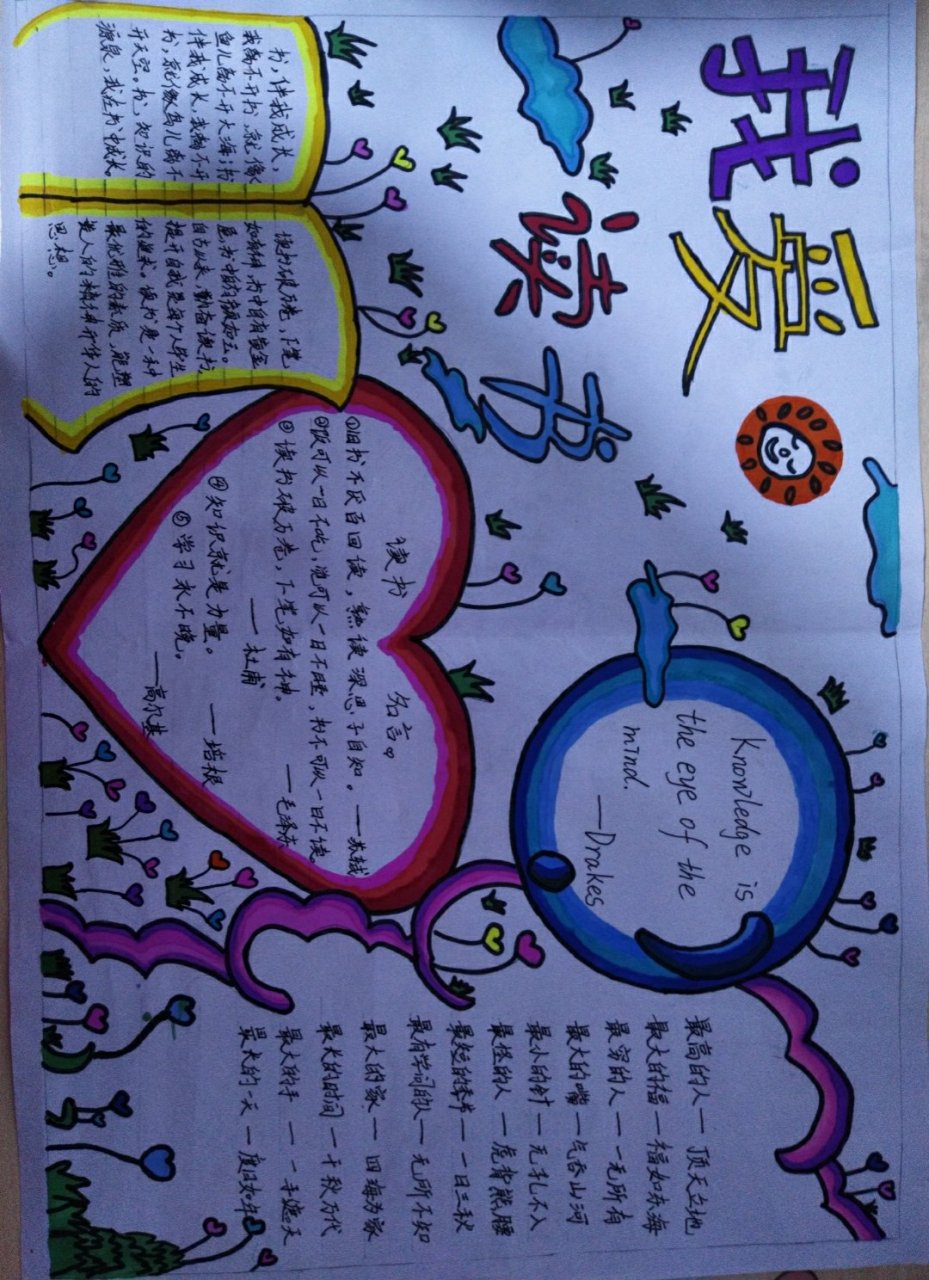 我爱
读书
书,伴我成长,
我离不开书,就像
鱼儿离不开大海;书
伴我成长,我离不开
书,就像鸟儿离不
开天空。书,知识的
源泉,我在书中成长。
读书破万卷,下笔
如有神,书中自有黄金
自古以来,勤奋读书,
提升自我是每个人毕生
的追求。读书是一种
最优雅的素质,能塑
造人的精神,升华人的
思想。
读书 名言。
①旧书不厌百回读,熟读深思子自知。——苏轼
②饭可以一日不吃,觉可以一日不睡,书不可以一日不读
——毛泽东
③读书破万卷,下笔如有神。
——杜甫
④知识就是力量。 ——培根
⑤学习永不晚。
——高尔基
Knowledge is
the eye of the
mind.
—Drakes
最高的人一顶天立地
最大的福一福如东海
最穷的人一一无所有
最大的嘴一气吞山河
最小的针一无孔不入
最怪的人一虎背熊腰
最短的季节一一日三秋
最有学问的人一无所不知
最大的家一四海为家
最长的时间一千秋万代
最大的手一一手遮天
最长的一天一度日如年